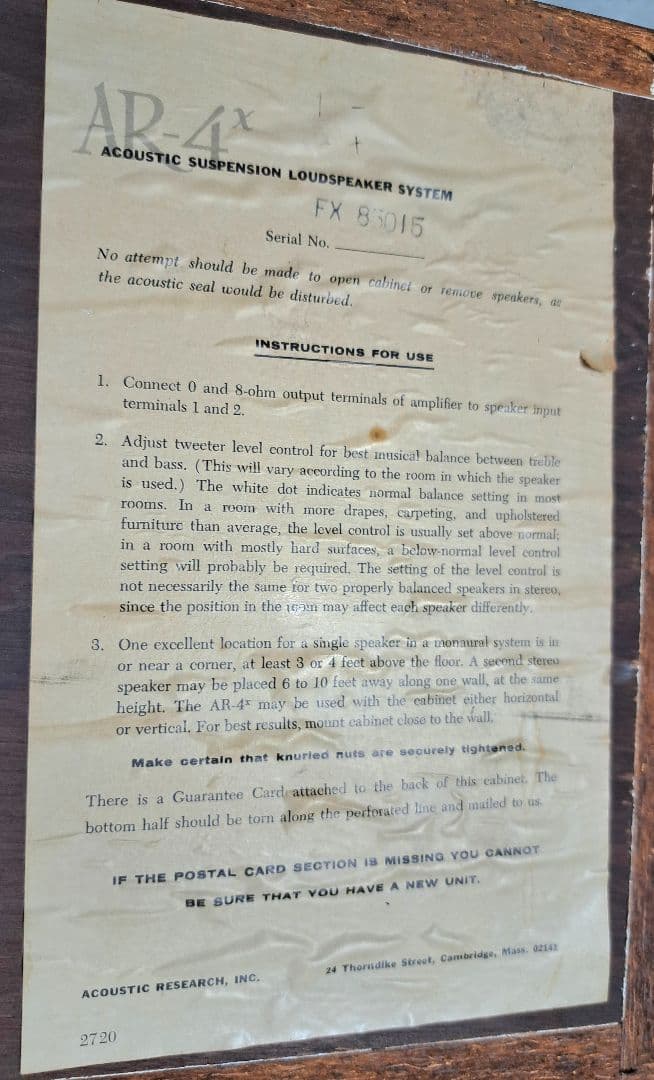 AR-4x
ACOUSTIC SUSPENSION LOUDSPEAKER SYSTEM
FX 83015
Serial No.
No attempt should be made to open cabinet or remove speakers, as
the acoustic seal would be disturbed.
INSTRUCTIONS FOR USE
1. Connect 0 and 8-ohm output terminals of amplifier to speaker input
terminals 1 and 2.
2. Adjust tweeter level control for best musical balance between treble
and bass. (This will vary according to the room in which the speaker
is used.) The white dot indicates normal balance setting in most
rooms. In a room with more drapes, carpeting, and upholstered
furniture than average, the level control is usually set above normal;
in a room with mostly hard surfaces, a below-normal level control
setting will probably be required. The setting of the level control is
not necessarily the same for two properly balanced speakers in stereo,
since the position in the room may affect each speaker differently.
3. One excellent location for a single speaker in a monaural system is in
or near a corner, at least 3 or 4 feet above the floor. A second stereo
speaker may be placed 6 to 10 feet away along one wall, at the same
height. The AR-4x may be used with the cabinet either horizontal
or vertical. For best results, mount cabinet close to the wall.
Make certain that knurled nuts are securely tightened.
There is a Guarantee Card attached to the back of this cabinet. The
bottom half should be torn along the perforated line and mailed to us.
IF THE POSTAL CARD SECTION IS MISSING YOU CANNOT
BE SURE THAT YOU HAVE A NEW UNIT.
ACOUSTIC RESEARCH, INC.
24 Thorndike Street, Cambridge, Mass. 02141
2720